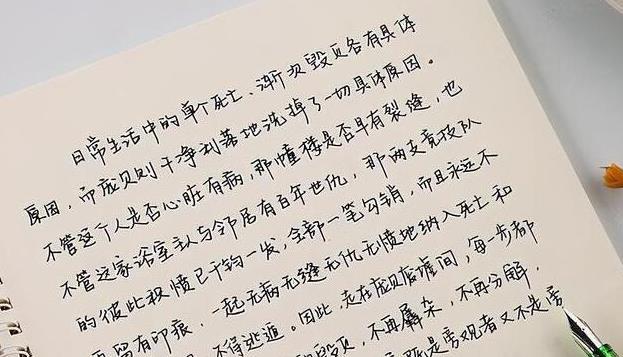 日常生活中的单个死亡、渐次毁灭各有具体
原因，而庞贝则干净利落地洗掉了一切具体原因。
不管这个人是否心脏有病，那幢楼是否早有裂缝，也
不管这家浴室主人与邻居有百年世仇，那两支竞技队
的彼此积愤已千钧一发，全部一笔勾销，而且永远不
再留有印痕，一起无病无缝无仇无愤地纳入死亡和
不得逃遁。因此，走在庞贝废墟间，每一步都
的毁灭，不再羼杂，不再分解，
是旁观者又不是